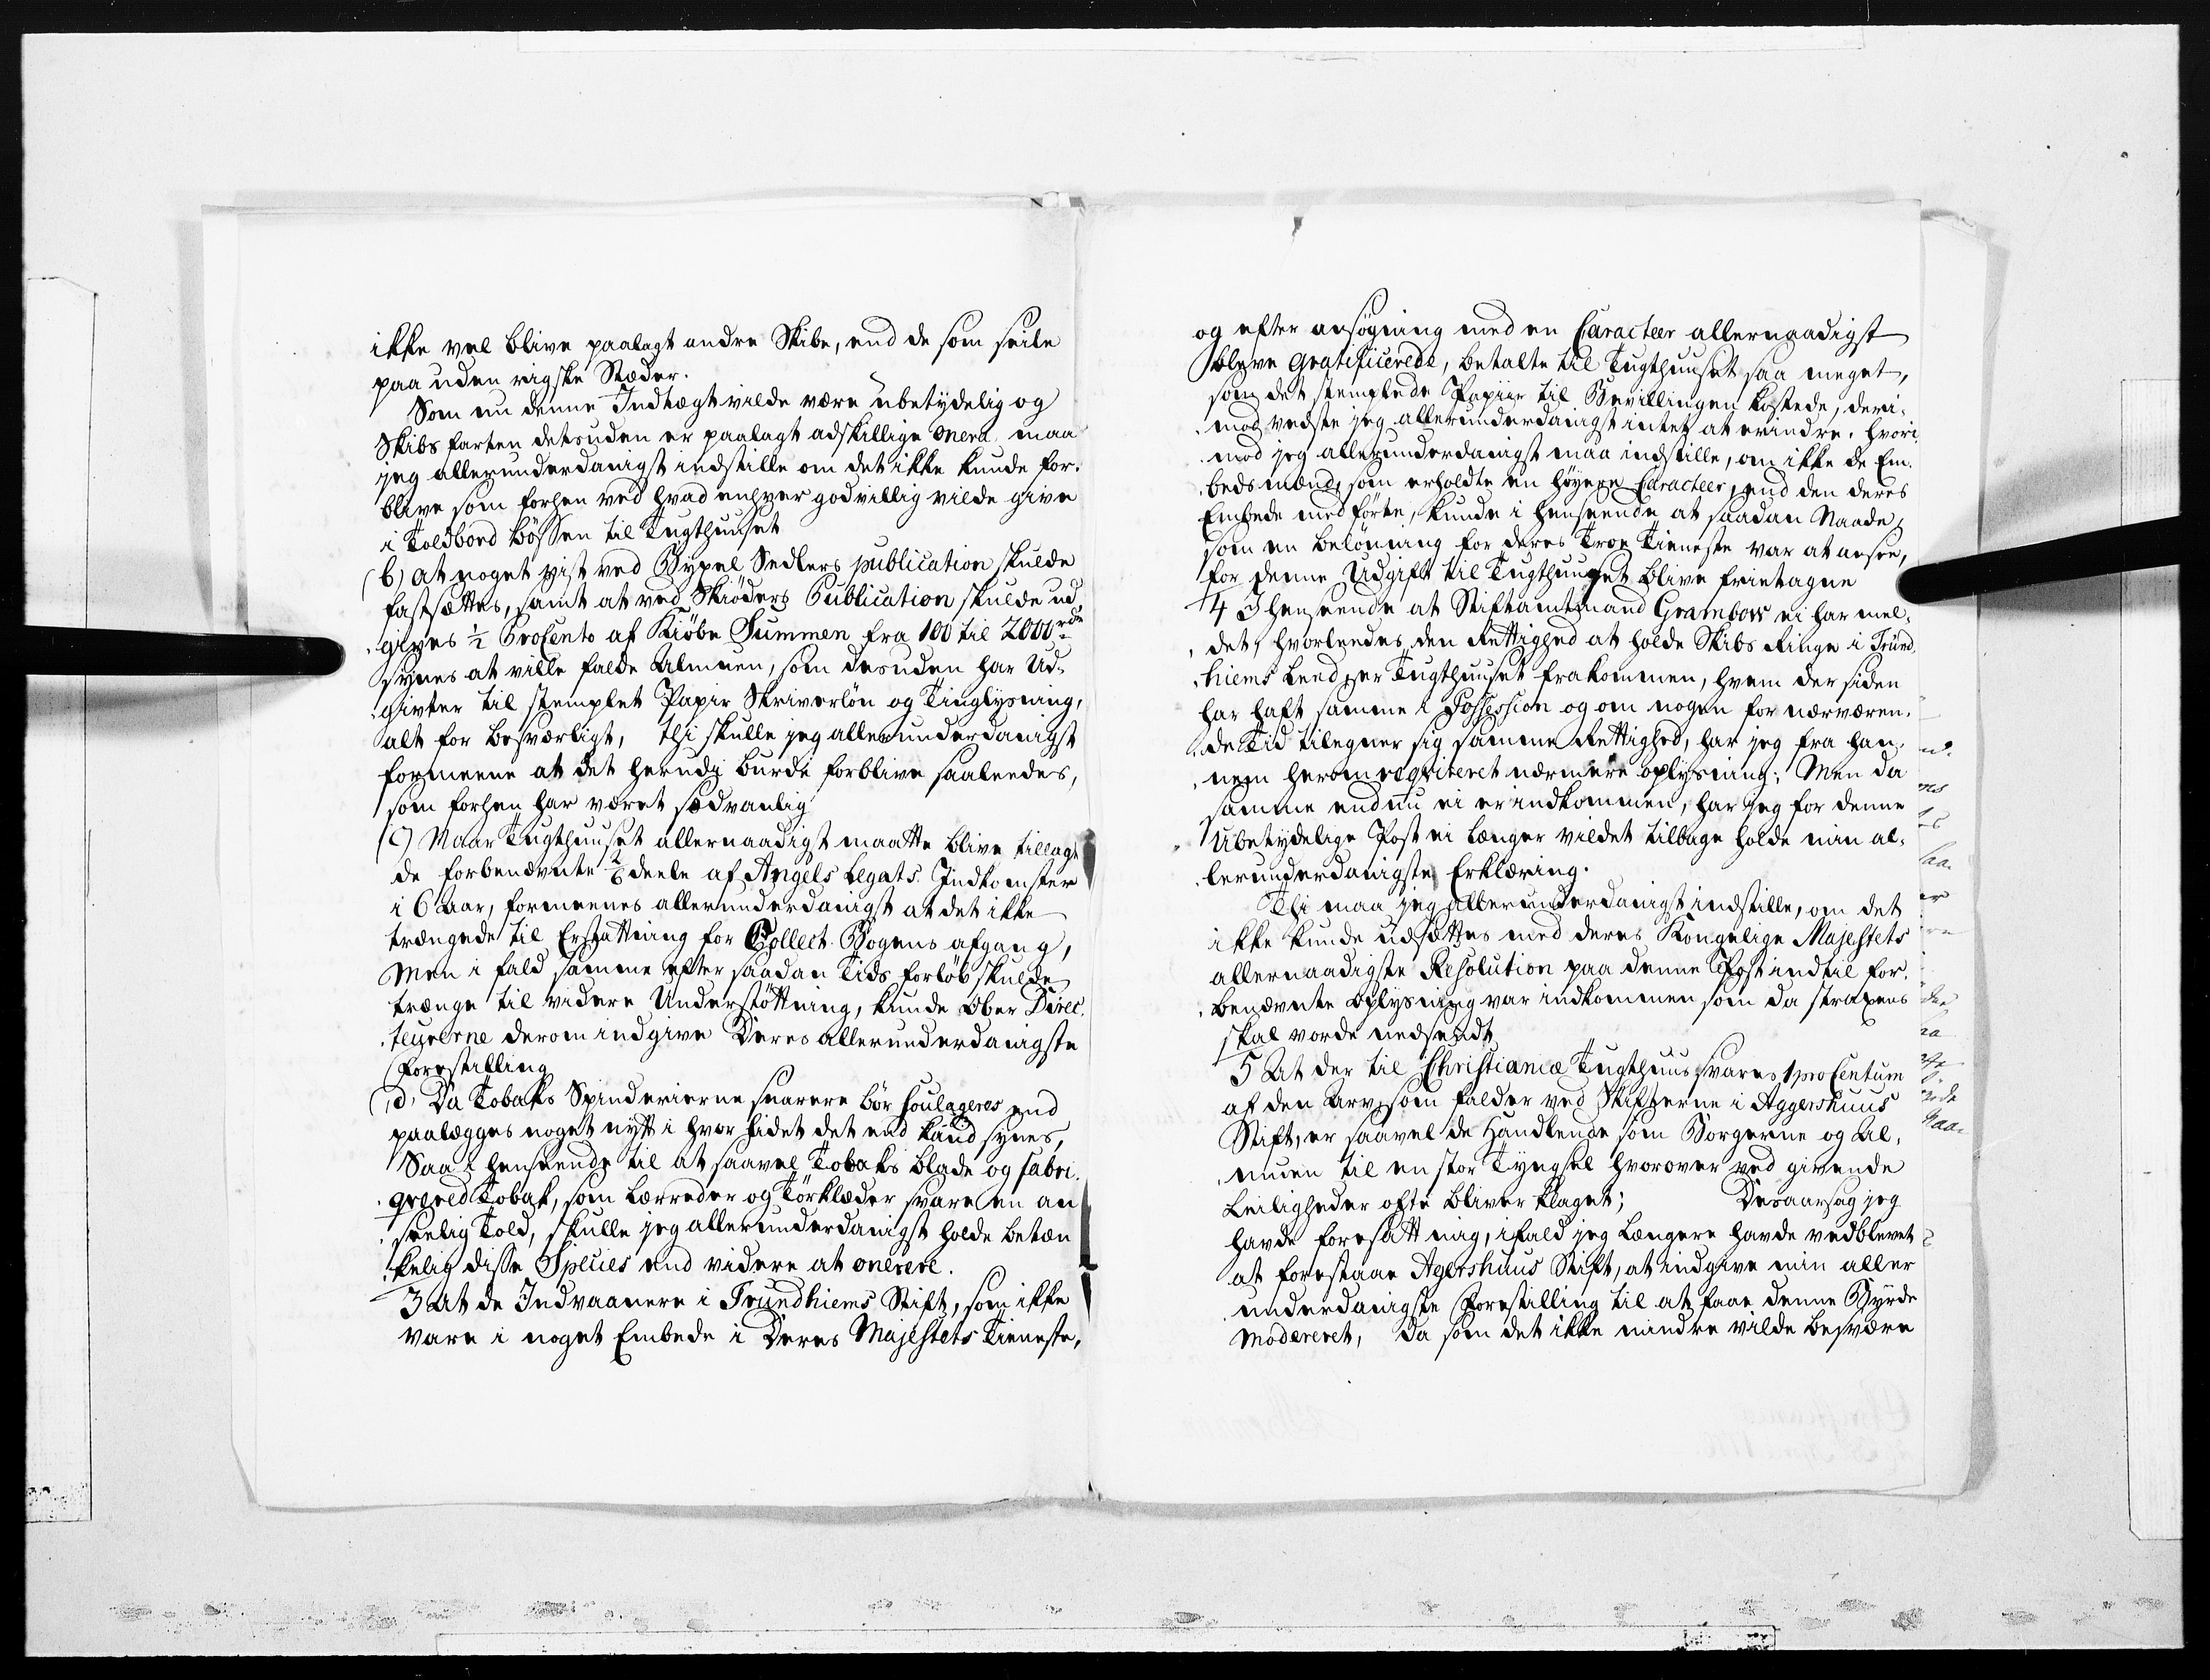 ikke vel blive paalagt andre Skibe, end de som seile
paa uden rigske Stæder.
Som nu denne Indtægt vilde være ubetydelig og
Skibs farten desuden er paalagt adskillige onera, maa
jeg allerunderdanigst indstille om det ikke kunde for-
blive som forhen ved hvad enhver godvillig vilde give
i Toldbod Bössen til Tugthuuset
b) at noget vist ved Bÿxel Sedlers publication skulde
fastsættes, samt at ved Skiöders Publication skulde ud
gives ½ Procento af Kiöbe Summen fra 100 til 2000 rdr
synes at ville falde Almuen, som desuden har Ud-
givter til stemplet Papir Skriverlön og Tinglysning,
alt for besværligt, thi skulle jeg allerunderdanigst
formeene at det herudi burde forblive saaledes,
som forhen har været sædvanlig
c) Naar Tugthuuset allernaadigst maatte blive tillagt
de forbenævnte 2/6 deele af Angels Legats Indkomster
i 6 Aar, formeenes allerunderdanigst at det ikke
trængede til Erstattning for Collect-Bogens afgang,
Men i fald samme efter saadan Tids forlöb skulde
trænge til videre Understöttning, kunde Ober Direc-
teurerne derom indgive Deres allerunderdanigste
Forestilling
d) Da Tobaks Spinderierne snarere bör soulageres end
paalægges noget nytt i hvor lidet det end kand synes,
Saa i henseende til at saavel Tobaks blade og fabri-
qvered Tobak, som Lærreder og Törklæder svare en an
seelig Told, skulle jeg allerunderdanigst holde betæn
kelig disse Species end videre at onerere.
3 At de Indvaanere i Trundhiems Stift, som ikke
vare i noget Embede i Deres Majestets Tieneste,
og efter ansögning med en Caracteer allernaadigst
bleve gratificerede, betalte til Tugthuuset saa meget,
som det stemplede Papiir til Bevillingen kostede, deri-
mod vedste jeg allerunderdanigst intet at erindre. Hvori
mod jeg allerunderdanigst maa indstille, om ikke de Em-
bedsmænd, som erholdte en höyere Caracteer, end den deres
Embede medförte, kunde i henseende at saadan Naade,
som en belönning for deres Troe Tieneste var at ansee,
for denne Udgift til Tugthuuset blive frietagne
4 I henseende at Stiftamtmand Grambow ei har mel-
det, hvorledes den Rettighed at holde Skibs Ringe i Trund
hiems Leed, er Tugthuuset frakommen, hvem der siden
har haft samme i Possession og om nogen for nærværen-
de Tid tilegner sig samme Rettighed, har jeg fra han-
nem herom reqviteret nærmere oplysning; Men da
samme endnu ei er indkommen, har jeg for denne
Ubetydelige Post ei længer vildet tilbage holde min al-
lerunderdanigste Erklæring.
Thi maa jeg allerunderdanigst indstille, om det
ikke kunde udsættes med deres Kongelige Majestets
allernaadigste Resolution paa denne Post indtil for-
benævnte oplysning var indkommen som da straxens
skal vorde nedsendt
5 At der til Christianiæ Tugthuus svares 1 proCentum
af den Arv, som falder ved Skifterne i Aggershuus
Stift, er saavel de Handlende som Borgerne og Al-
muen til en stor Tyngsel hvorover ved givende
Leiligheder ofte bliver klaget; Desaarsag jeg
havde foresatt mig, ifald jeg længere havde vedblevet
at forestaae Agershuus Stift, at indgive min aller
underdanigste Forestilling til at faae denne Byrde
modereret, da som det ikke mindre vilde besvære